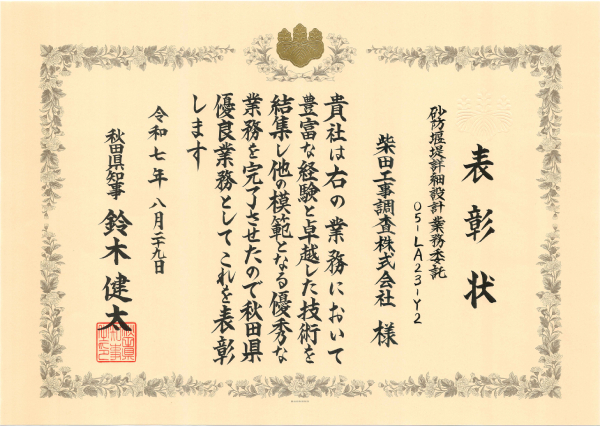 表彰状
砂防堰堤詳細設計業務委託
05-LA23-Y2
柴田工事調査株式会社 様
貴社は右の業務において
豊富な経験と卓越した技術を
結集し他の模範となる優秀な
業務を完了させたので秋田県
優良業務としてこれを表彰
します
令和七年八月二十九日
秋田県知事 鈴木健太